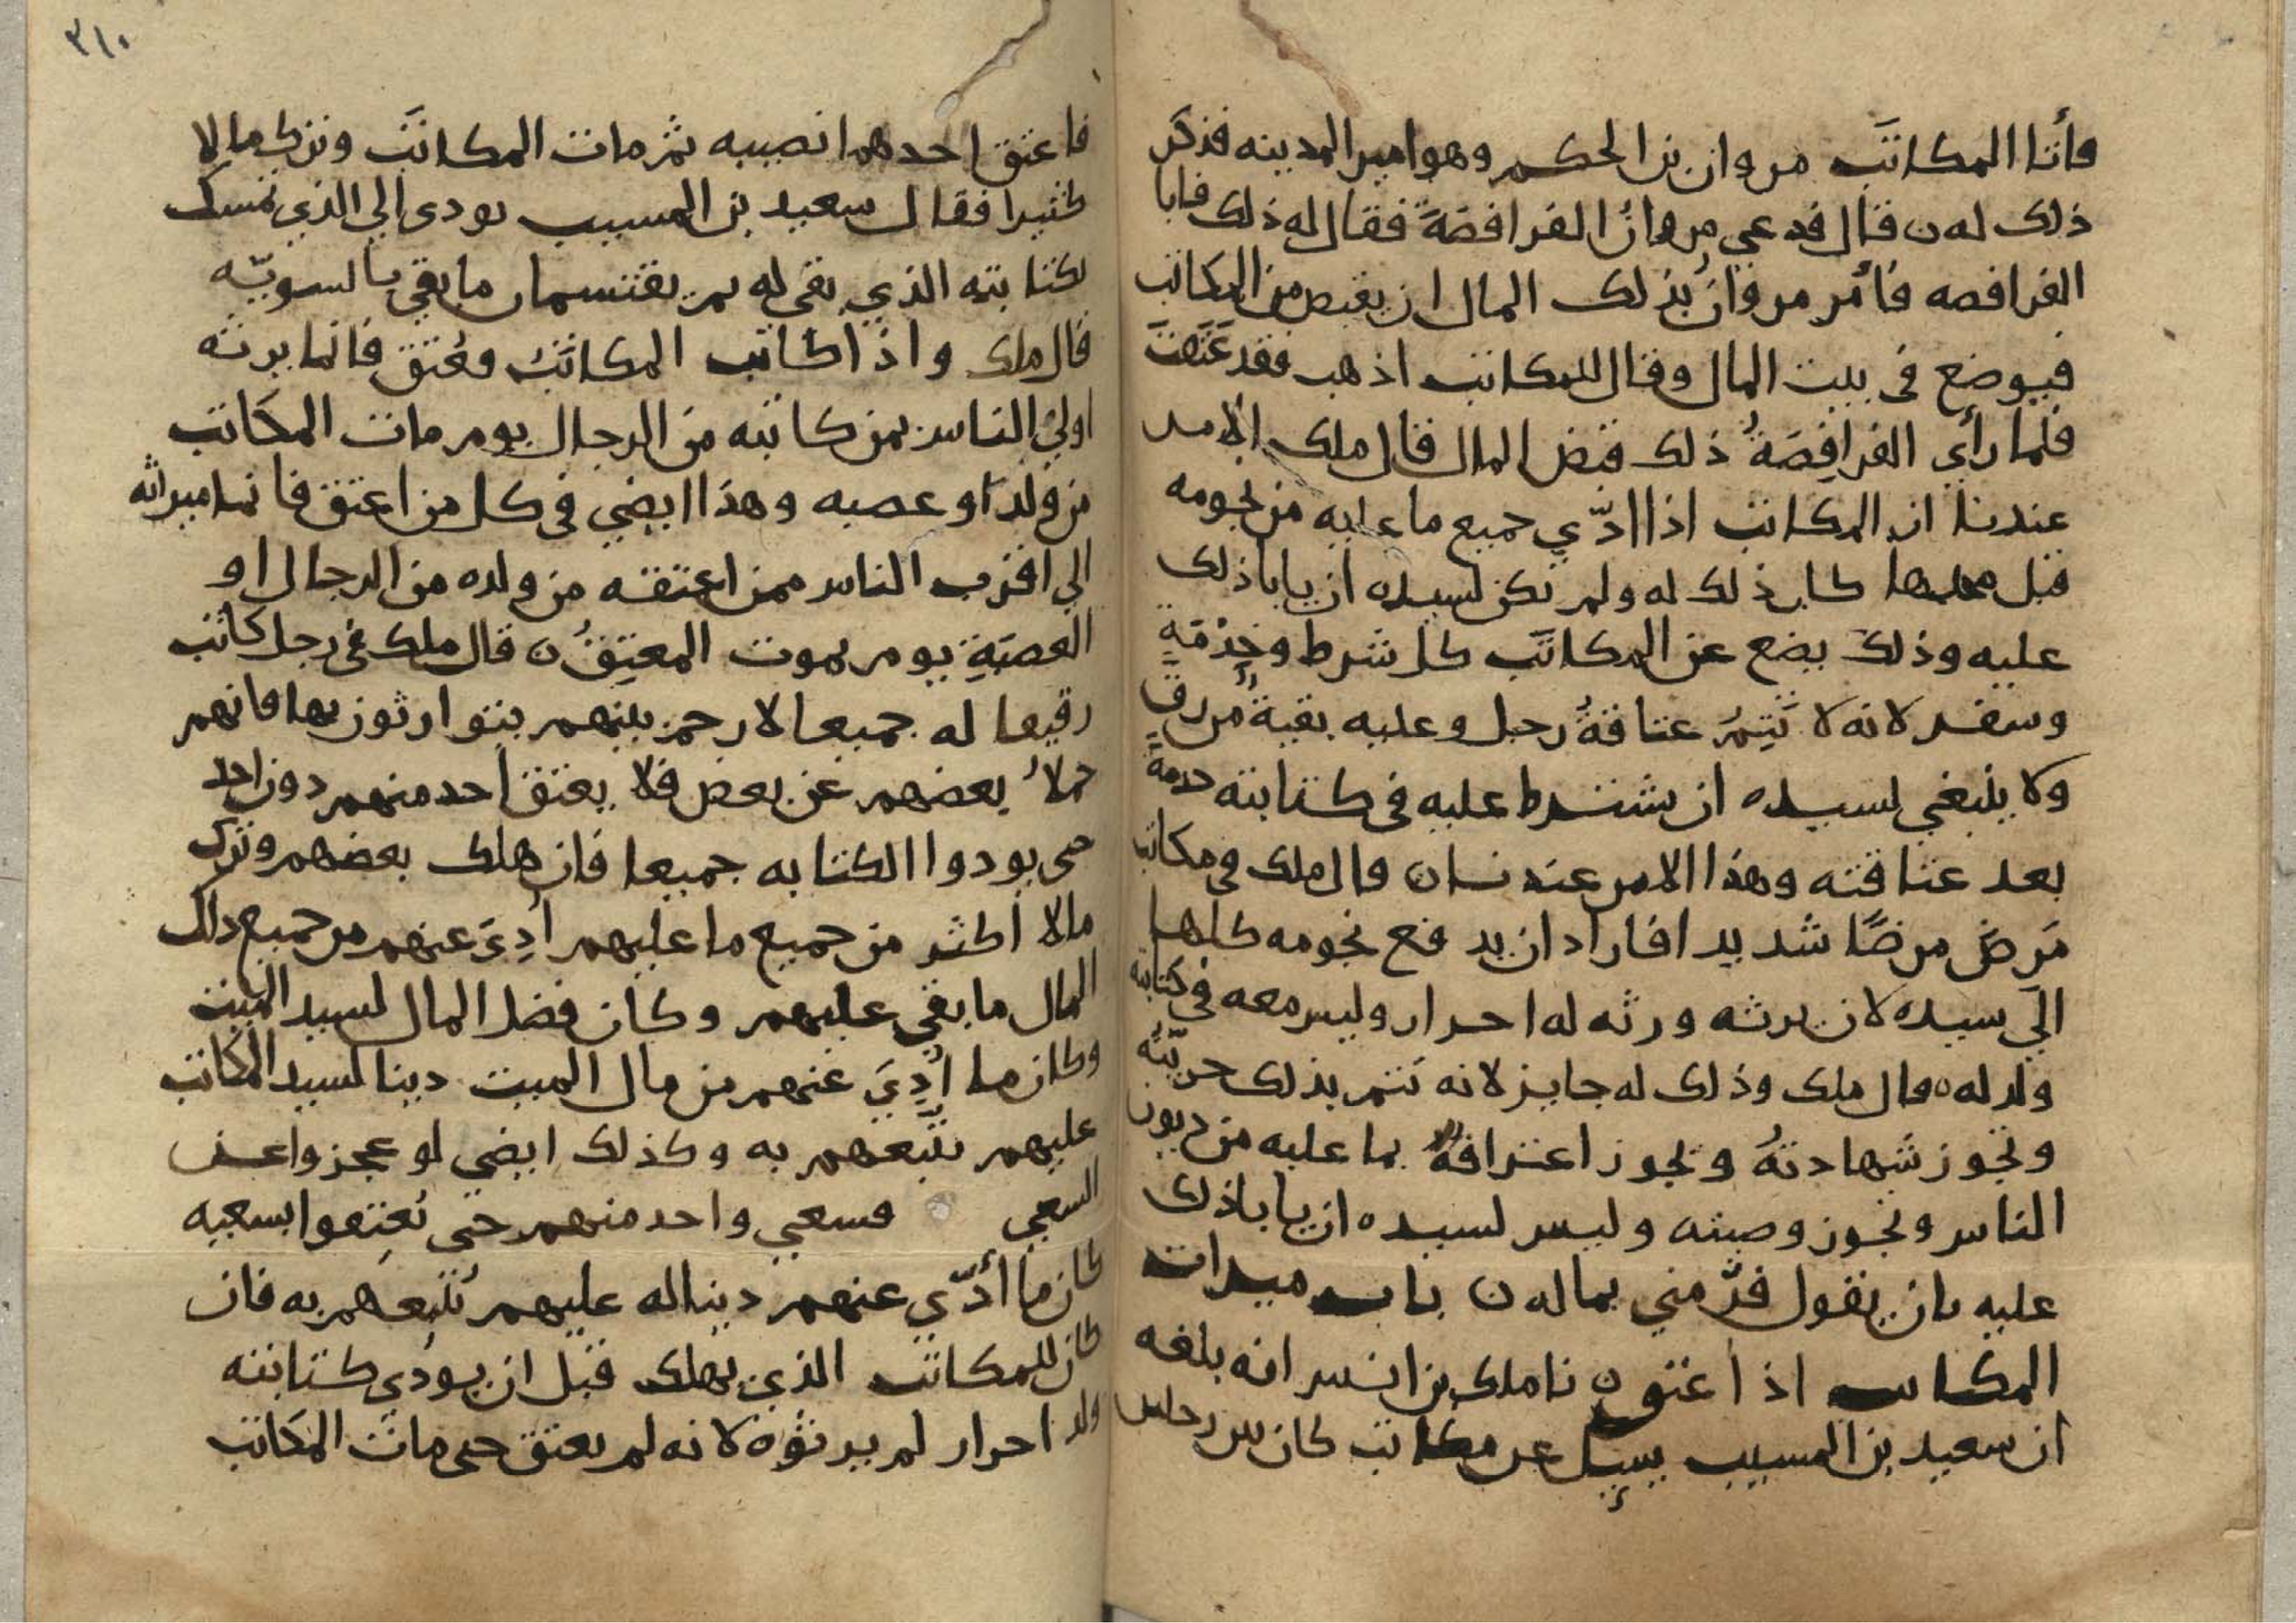 فأتا المكاتَب مروان بن الحكم وهو امير المدينه فذكر
ذلك له ن قال فدعي مروانُ الفرافصَةَ فقال له ذلك فابا
الفرافصه فأمر مروانُ بذلك المال ان يقبض من المكاتب
فيوضع في بيت المال وقال للمكاتب اذهب فقد عَتَقتَ
فلما رأي الفرافِصَةُ ذلك قبض المال قال ملك الامر
عندنا ان المكاتب اذا ادّي جميع ما عليه من نجومه
قبل محلها كان ذلك له ولم تكن لسيده ان يابا ذلك
عليه وذلك يضع عن المكاتَب كل شرط وخِدْمَةٍ
وسفر لانه لا تَتِمُّ عتاقةُ رجل وعليه بقيةٌ من رقٍ
ولا ينبغي لسيده ان يشترط عليه في كتابته خدمةً
بعد عتاقته وهذا الامر عندنا ن قال ملك في مكاتب
مَرِضَ مرضًا شديدا فاراد ان يدفع نجومه كلها
الي سيده لان يرثه ورثه له احرار وليس معه في كتابته
ولد له ن قال ملك وذلك له جايز لانه تتم بذلك حريّته
وتجوز شهادتهُ وتجوز اعترافهُ بما عليه من ديون
الناس وتجوز وصيته وليس لسيده ان يابا ذلك
عليه بان يقول فرّ مني بماله ن باب ميراث
المكاتب اذا عتق ن نا ملك بن انس انه بلغه
ان سعيد بن المسيب سيل عن مكاتب كان بين رجلين
٣١٠
فاعتق احدهما نصيبه ثم مات المكاتَب وترك مالا
كثيرا فقال سعيد بن المسيب يودي الي الذي تمسك
بكتابته الذي بقي له ثم يقتسمان ما بقي بالسويّه
قال ملك واذا كاتب المكاتَبُ فعُتق فانما يرثه
اولي الناس بمن كاتبه من الرجال يوم مات المكاتب
من ولدٍ او عصبه وهذا ايضي في كل من اعتق فانما ميراثه
الي اقرب الناس ممن اعتقه من ولده من الرجال او
العصبَةِ يوم يموت المعتِقُ ن قال ملك في رجل كاتب
رقيقا له جميعا لا رحم بينهم يتوارثون بها فانهم
حملاُ بعضهم عن بعض فلا يعتق احد منهم دون احد
حتي يودوا الكتابه جميعا فان هلك بعضهم وترك
مالا اكثر من جميع ما عليهم اُدِيَ عنهم من جميع ذلك
المال ما بقي عليهم وكان فضل المال لسيد الميت
وكان ما اُدِيَ عنهم من مال الميت دينا لسيد المكاتب
عليهم يتّبعهم به وكذلك ايضي لو عجزوا عن
السعي فسعي واحد منهم حتي عُتِقوا بسعيه
كان ما أدّي عنهم دينا له عليهم يُتبعهم به فان
كان للمكاتب الذي يهلك قبل ان يودي كتابته
ولد احرار لم يرثوه لانه لم يعتق حتي مات المكاتب